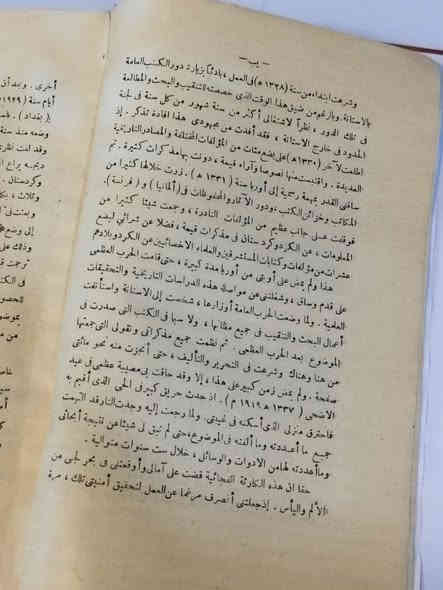 — ب —
وشرعت ابتداء من سنة (١٣٢٨ هـ) فى العمل، بادئاً بزيارة دور الكتب العامة
بالآستانة. وبالرغم من ضيق هذا الوقت الذى خصصته للتنقيب والبحث والمطالعة
فى تلك الدور، نظراً لاشتغالى أكثر من ستة شهور من كل سنة فى لجنة
الحدود فى خارج الآستانة، فقد أفدت من مجهودى هذا افادة تذكر. إذ
اطلعت لآخر (١٣٣٠ هـ) على بضع مئات من المؤلفات المختلفة والمصادر التاريخية
العديدة. واقتبست منها نصوصا وآراء قيمة، دونت بها مذكرات كثيرة. ثم
ساقنى القدر بمهمة رسمية إلى أوربا سنة (١٣٣١ هـ). زرت خلالها كثيرا من
المكاتب وخزائن الكتب ودور الآثار والمحفوظات فى (ألمانيا) و (فرنسة).
فوقفت على جانب عظيم من المؤلفات النادرة، وجمعت شيئا كثيرا من
المعلومات، عن الكرد وكردستان فى مذكرات قيمة، فضلا عن شرائى لبضع
عشرات من مؤلفات وكتابات المستشرقين والعلماء الاخصائيين عن الكرد وبلادهم
هذا ولم يمض على أوبتى من أوربا مدة كبيرة، حتى قامت الحرب العظمى
على قدم وساق، وشغلتنى عن مواصلة هذه الدراسات التاريخية والتحقيقات
العلمية. ولما وضعت الحرب العامة أوزارها، شخصت إلى الآستانة واستأنفت
أعمال البحث والتنقيب فى جميع مظانها، ولا سيما فى الكتب التى صدرت فى
الموضوع بعد الحرب العظمى. ثم نظمت جميع مذكراتى ونقولى التى جمعتها
من هنا وهناك وشرعت فى التحرير والتأليف، حتى أنجزت منه نحو مائتى
صفحة. ولم يمض زمن كبير على هذا، إلا وقد حاقت بى مصيبة عظمى فى عيد
الاضحى (١٣٣٧ هـ ١٩١٩ م). اذ حدث حريق كبير فى الحى الذى أقيم به
فاحترق منزلى الذى أسكنه فى غيبتى. ولما رجعت إليه وجدت النار قد التهمت
جميع ما أعددته وما ألفته فى الموضوع، حتى لم تبق لى شيئا من نتيجة أبحاثى
وما أعددته لها من الادوات والوسائل، خلال ست سنوات متوالية.
حقا ان هذه الكارثة الفجائية قضت على آمالى وأوقعتنى فى بحر لجى من
الألم واليأس. إذ جعلتنى أنصرف مرغما عن العمل لتحقيق أمنيتى تلك، مرة